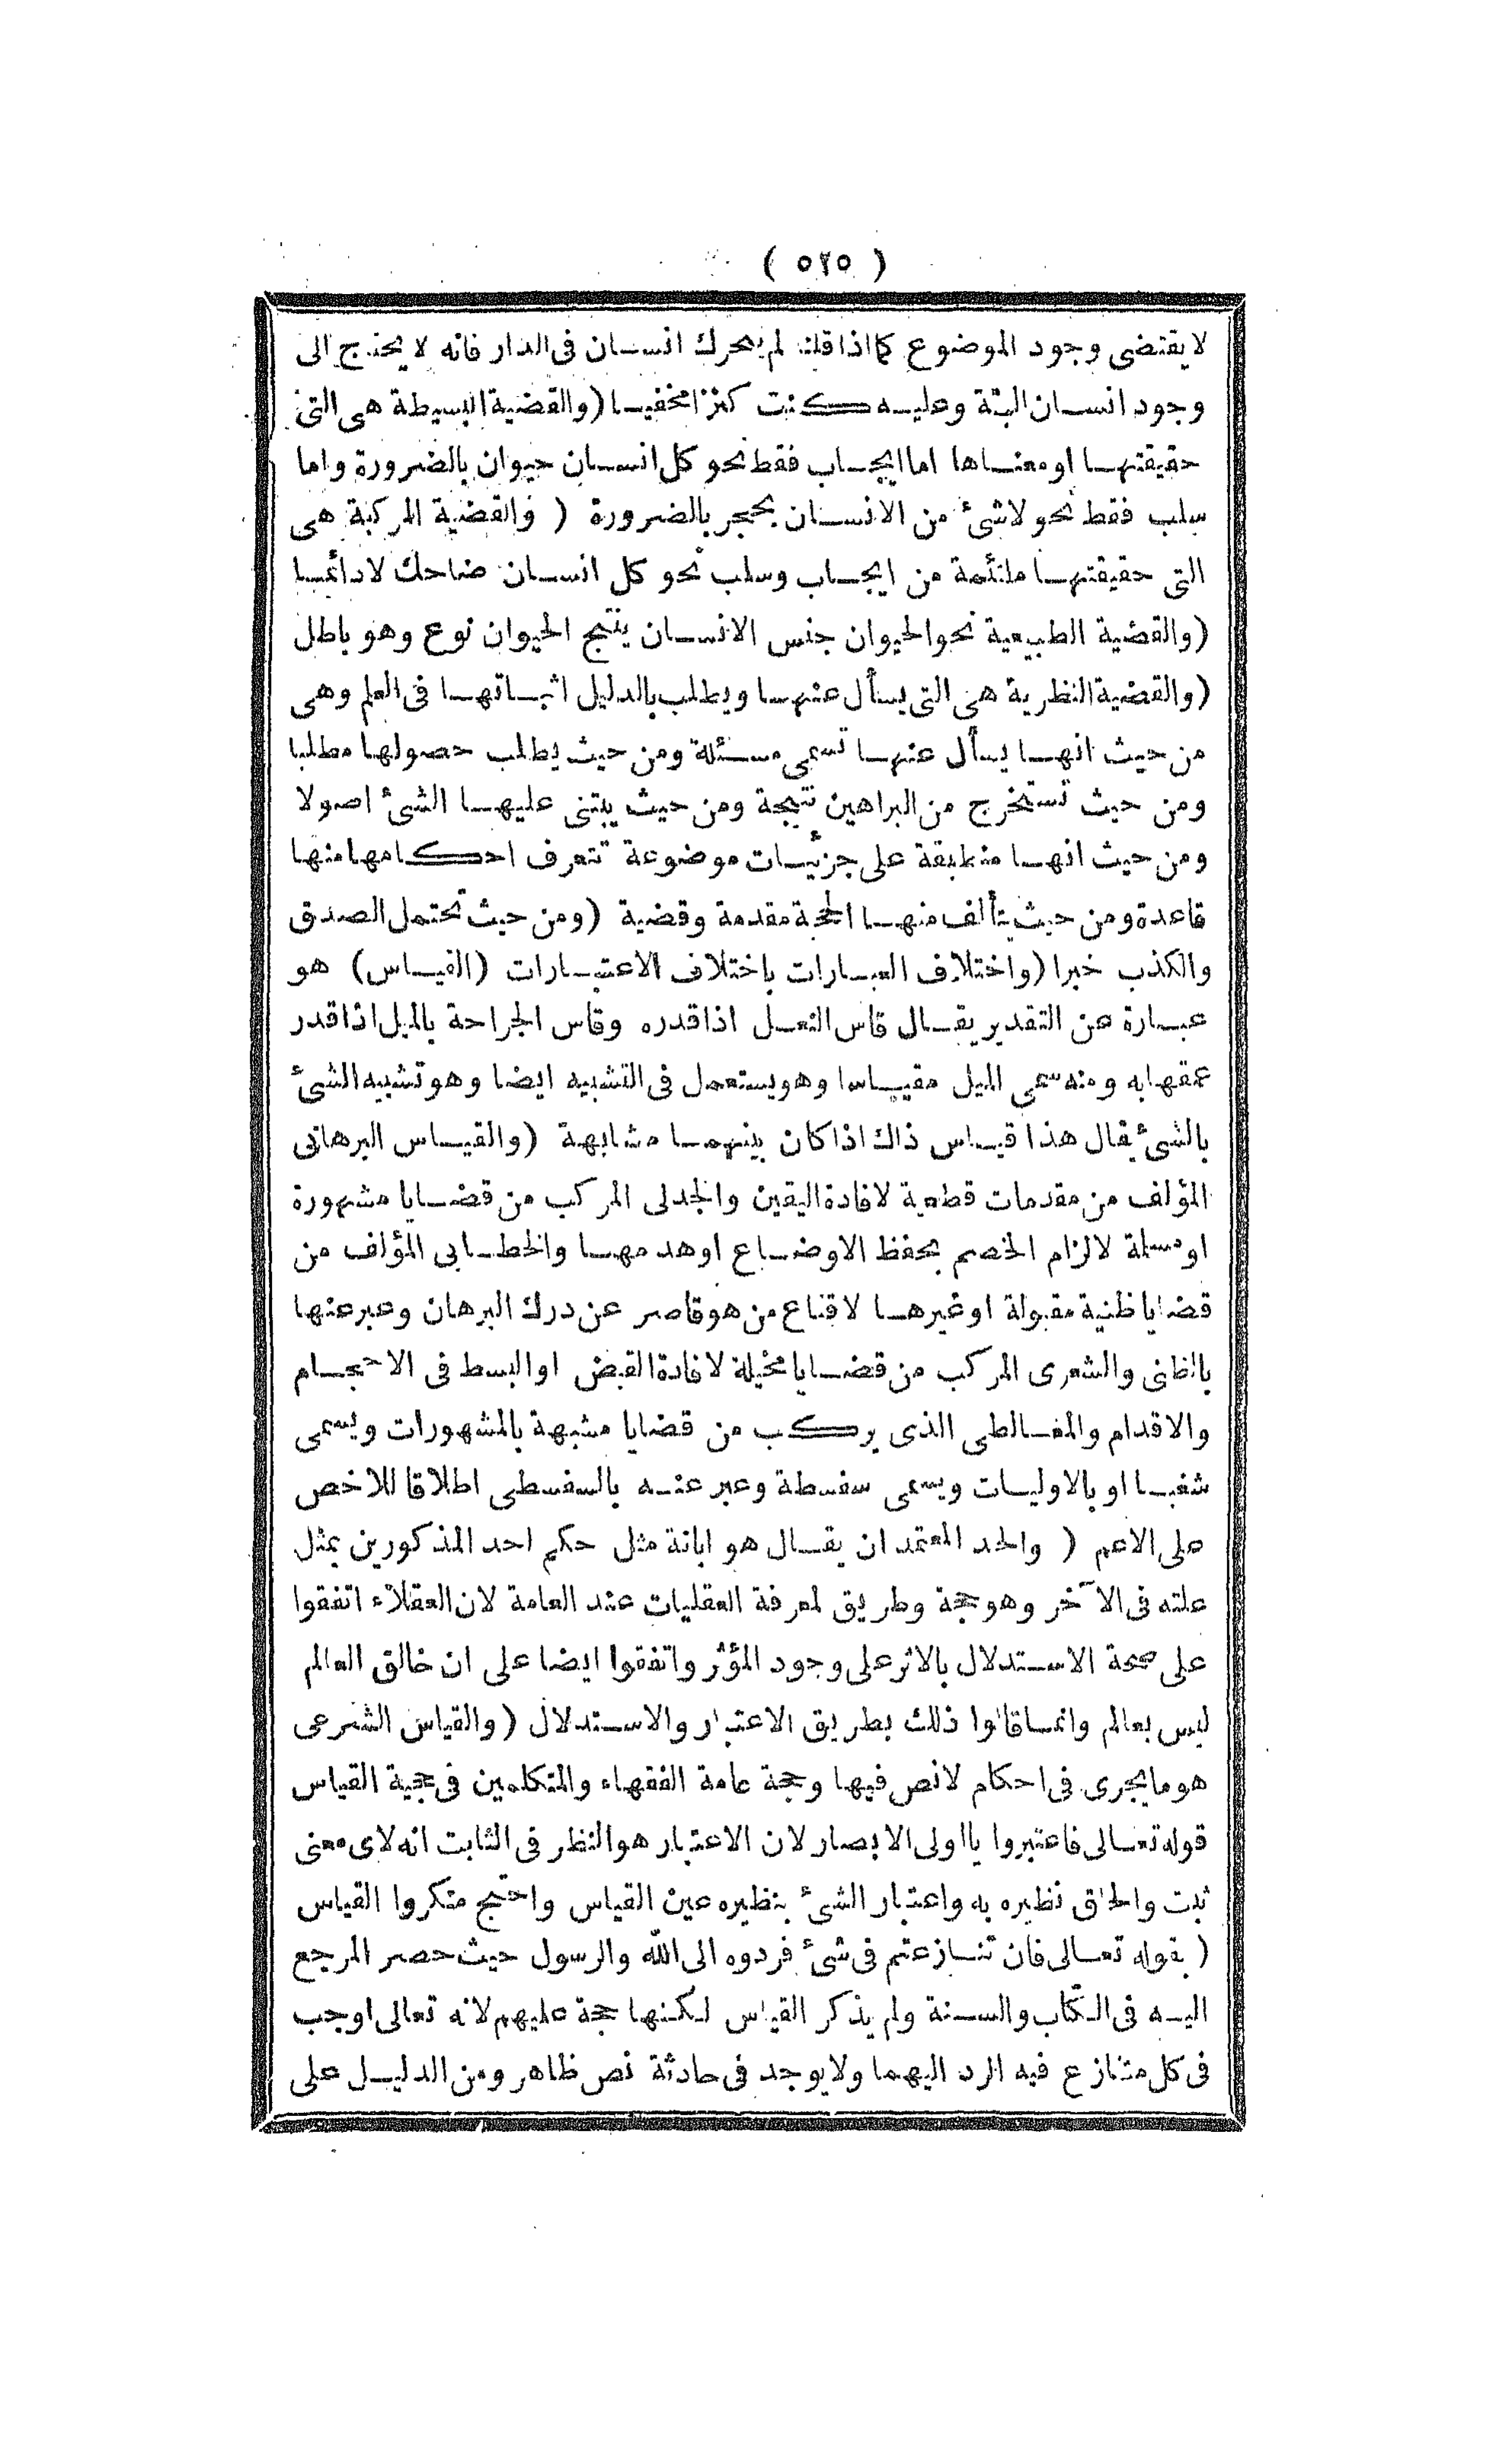 ( ٥٢٥ )
لا يقتضى وجود الموضوع كما اذا قلنا لم يتحرك انسان فى الدار فانه لا يحتاج الى
وجود انسان البتة وعليه كنت كنزا مخفيا (والقضية البسيطة هى التى
حقيقتها او معناها اما ايجاب فقط نحو كل انسان حيوان بالضرورة واما
سلب فقط نحو لا شئ من الانسان بحجر بالضرورة ( والقضية المركبة هى
التى حقيقتها ملتئمة من ايجاب وسلب نحو كل انسان ضاحك لا دائما
(والقضية الطبيعية نحو الحيوان جنس الانسان ينتج الحيوان نوع وهو باطل
(والقضية النظرية هى التى يسأل عنها ويطلب بالدليل اثباتها فى العلم وهى
من حيث انها يسأل عنها تسمى مسئلة ومن حيث يطلب حصولها مطلبا
ومن حيث تستخرج من البراهين نتيجة ومن حيث يبتنى عليها الشئ اصولا
ومن حيث انها منطبقة على جزئيات موضوعة تتعرف احكامها منها
قاعدة ومن حيث يتألف منها الحجة مقدمة وقضية (ومن حيث تحتمل الصدق
والكذب خبرا (واختلاف العبارات باختلاف الاعتبارات (القياس) هو
عبارة عن التقدير يقال قاس النعل اذا قدره وقاس الجراحة بالميل اذا قدر
عمقها به ومنه سمى الميل مقياسا وهو يستعمل فى التشبيه ايضا وهو تشبيه الشئ
بالشئ يقال هذا قياس ذاك اذا كان بينهما مشابهة (والقياس البرهانى
المؤلف من مقدمات قطعية لافادة اليقين والجدلى المركب من قضايا مشهورة
او مسلمة لالزام الخصم بحفظ الاوضاع او هدمها والخطابى المؤلف من
قضايا ظنية مقبولة او غيرها لاقناع من هو قاصر عن درك البرهان وعبر عنها
بالظنى والشعرى المركب من قضايا مخيلة لافادة القبض او البسط فى الاحجام
والاقدام والمغالطى الذى يركب من قضايا مشبهة بالمشهورات ويسمى
شغبا او بالاوليات ويسمى سفسطة وعبر عنه بالسفسطى اطلاقا للاخص
على الاعم ( والحد المعتمد ان يقال هو ابانة مثل حكم احد المذكورين بمثل
علته فى الآخر وهو حجة وطريق لمعرفة العقليات عند العامة لان العقلاء اتفقوا
على صحة الاستدلال بالاثر على وجود المؤثر واتفقوا ايضا على ان خالق العالم
ليس بعالم وانما قالوا ذلك بطريق الاعتبار والاستدلال (والقياس الشرعى
هو ما يجرى فى احكام لا نص فيها وحجة عامة الفقهاء والمتكلمين فى حجية القياس
قوله تعالى فاعتبروا يا اولى الابصار لان الاعتبار هو النظر فى الثابت انه لاى معنى
ثبت والحاق نظيره به واعتبار الشئ بنظيره عين القياس واحتج منكروا القياس
( بقوله تعالى فان تنازعتم فى شئ فردوه الى الله والرسول حيث حصر المرجع
اليه فى الكتاب والسنة ولم يذكر القياس لكنها حجة عليهم لانه تعالى اوجب
فى كل متنازع فيه الرد اليهما ولا يوجد فى حادثة نص ظاهر ومن الدليل على